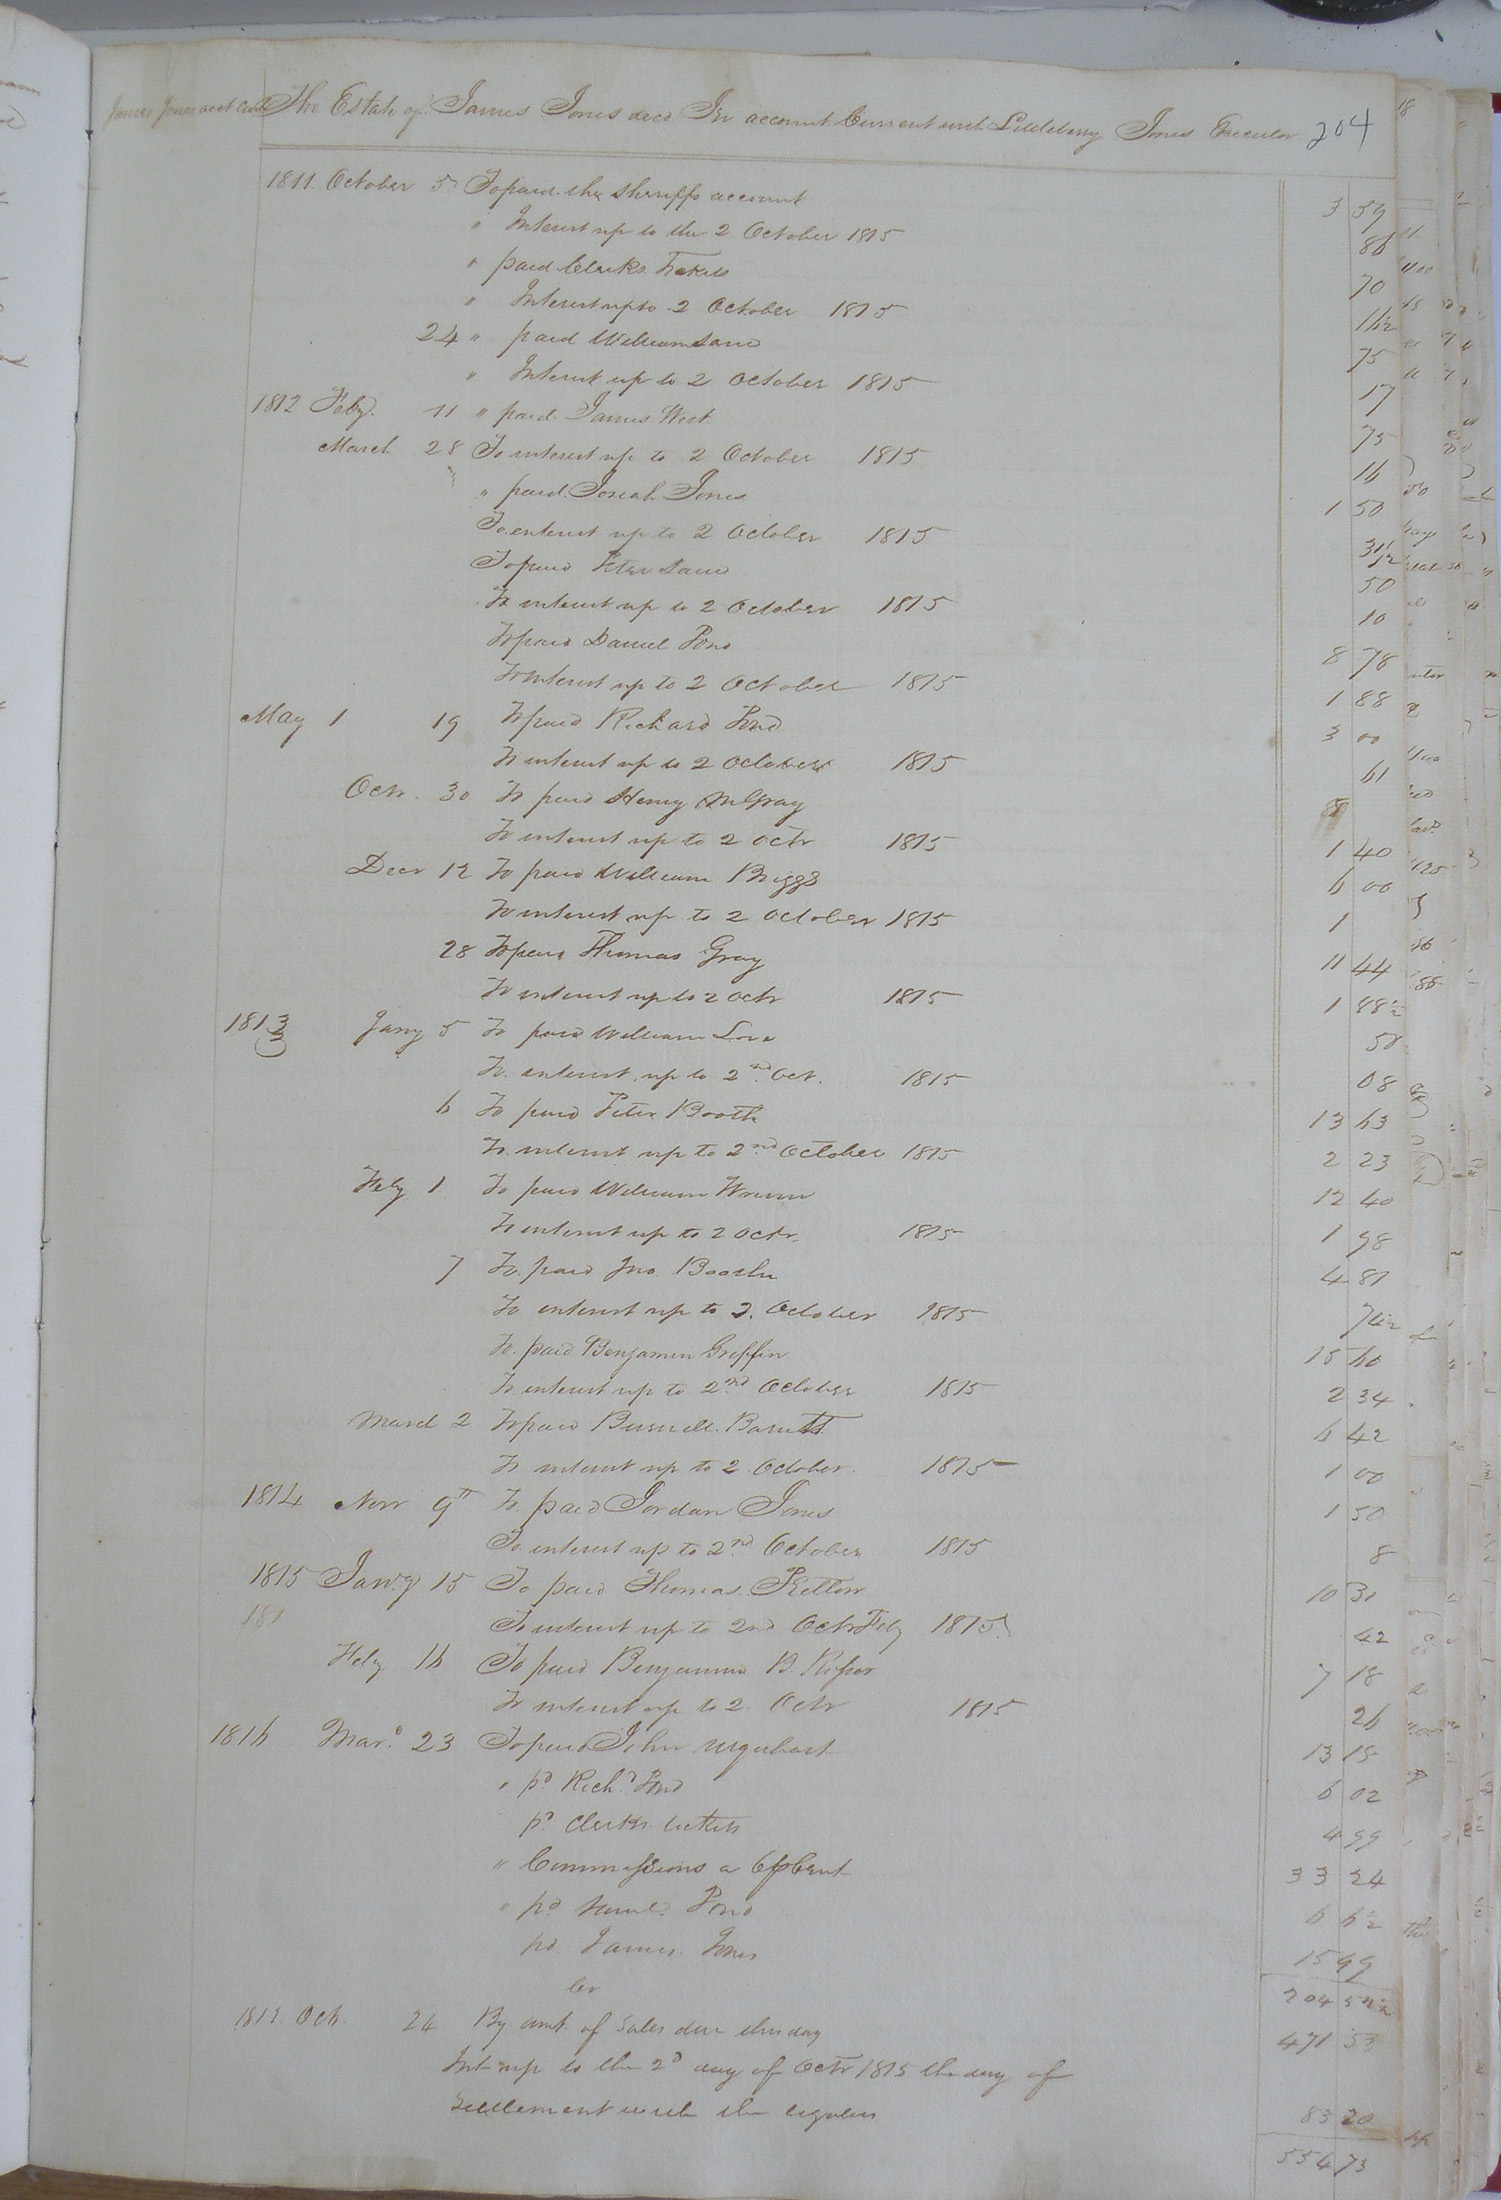 James Jones acct Curt
The Estate of James Jones decd In account Current with Littleberry Jones Executor 204
1811. October 5 To paid the Sheriffs account 3 59
" Interest up to the 2 October 1815 86
" paid Clerks Tickets 70
" Interest up to 2 October 1815 16½
24 " paid William Lane 75
" Interest up to 2 October 1815 17
1812 Feby. 11 " paid James West 75
March 28 To interest up to 2 October 1815 16
" paid Josiah Jones 1 50
To interest up to 2 October 1815 31½
To paid Peter Lane 50
To interest up to 2 October 1815 10
To paid Daniel Pond 8 78
To interest up to 2 October 1815 1 88
May 1 19 To paid Richard Pond 3 00
To interest up to 2 October 1815 61
Octr. 30 To paid Henry McGray 8
To interest up to 2 Octr 1815 1 40
Decr 12 To paid William Briggs 6 00
To interest up to 2 October 1815 1
28 To paid Thomas Gray 11 44
To interest up to 2 Octr 1815 1 88½
1813 3 Jany 5 To paid William Love 50
To interest up to 2nd Oct. 1815 08
6 To paid Peter Booth 13 63
To interest up to 2nd October 1815 2 23
Feby 1 To paid William 12 40
To interest up to 2 Octr. 1815 1 98
7 To paid Jno. Booth 4 81
To interest up to 2. October 1815 74½
To paid Benjamin Griffin 15 60
To interest up to 2nd October 1815 2 34
March 2 To paid Burwell Barrett 6 42
To interest up to 2 October 1815 1 00
1814 Novr 9th To paid Jordan Jones 1 50
To interest up to 2nd October 1815 8
1815 Jany 15 To paid Thomas 10 31
181 To interest up to 2nd Octr Feby 1815 42
Feby 16 To paid Benjamin B. Roper 7 18
To interest up to 2 Octr 1815 26
1816 Mar. 23 To paid John Urquhart 13 18
" pd Richd Pond 6 02
pd Clerks tickets 4 99
" Commissions a 6 p Cent 33 24
" pd Saml. Pond 6 6½
pd. James Jones 15 99
Cr 204 52½
1812. Oct. 24 By amt. of Sales due this day 471 53
Int up to the 2d day of Octr 1815 the day of
Settlement with the legatees 83 20
554 73